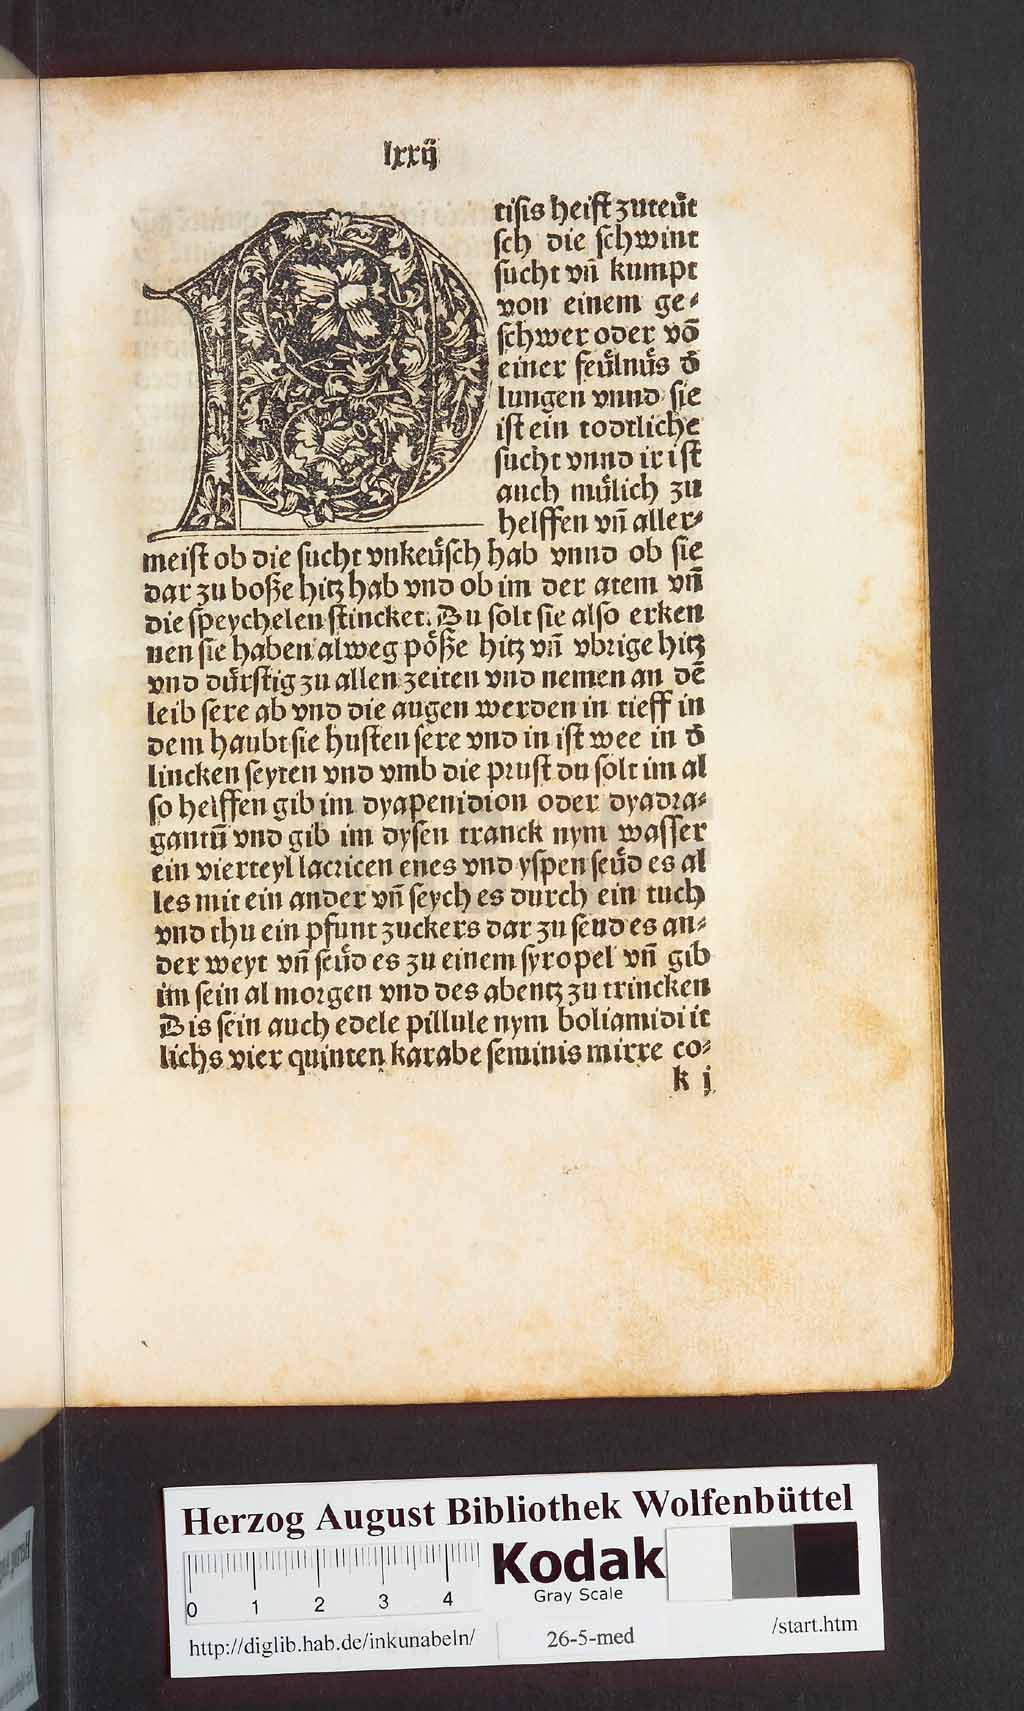 lxxij
Ptisis heist zuteuͤt
sch die schwint
sucht vn̄ kumpt
von einem ge⸗
schwer oder vō
einer feuͤlnuͤs d̄
lungen vnnd sie
ist ein todtliche
sucht vnnd ir ist
auch muͤlich zu
helffen vn̄ aller⸗
meist ob die sucht vnkeuͤsch hab vnnd ob sie
dar zu boße hitz hab vnd ob im der atem vn̄
die speychelen stincket. Du solt sie also erken
nen sie haben alweg poͤße hitz vn̄ vbrige hitz
vnd duͤrstig zu allen zeiten vnd nemen an dē
leib sere ab vnd die augen werden in tieff in
dem haubt sie husten sere vnd in ist wee in d̄
lincken seyten vnd vmb die prust du solt im al
so helffen gib im dyapenidion oder dyadra⸗
gantū vnd gib im dysen tranck nym wasser
ein vierteyl lacricen enes vnd yspen seuͤd es al
les mit ein ander vn̄ seych es durch ein tuch
vnd thu ein pfunt zuckers dar zu seud es an⸗
der weyt vn̄ seuͤd es zu einem syropel vn̄ gib
im sein al morgen vnd des abentz zu trincken
Dis sein auch edele pillule nym boliamidi it
lichs vier quinten karabe seminis mirre co⸗
k j
Herzog August Bibliothek Wolfenbüttel
Kodak
Gray Scale
0 1 2 3 4
http://diglib.hab.de/inkunabeln/ 26-5-med /start.htm